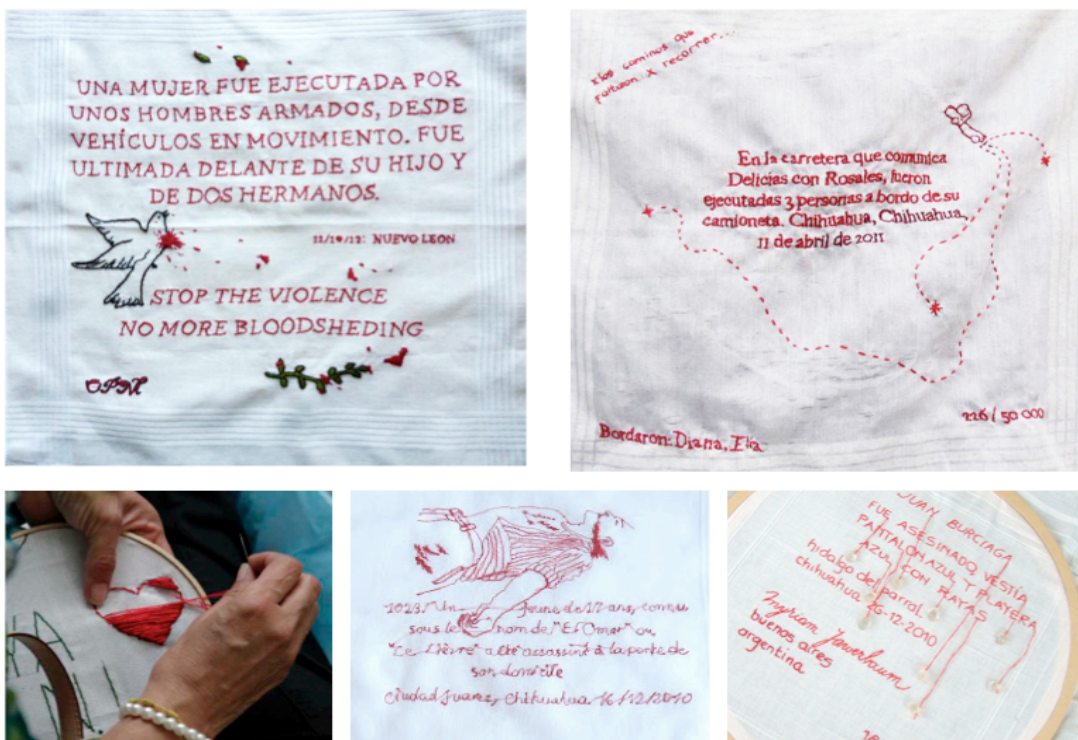 UNA MUJER FUE EJECUTADA POR
UNOS HOMBRES ARMADOS, DESDE
VEHÍCULOS EN MOVIMIENTO. FUE
ULTIMADA DELANTE DE SU HIJO Y
DE DOS HERMANOS.
NUEVO LEON
STOP THE VIOLENCE
NO MORE BLOODSHEDING
x los caminos que
faltaron x recorrer...
En la carretera que comunica
Delicias con Rosales, fueron
ejecutadas 3 personas a bordo de su
camioneta. Chihuahua, Chihuahua,
11 de abril de 2011
226 / 50 000
Bordaron: Diana, Elia
1023/ Un jeune de 17 ans, connu
sous le nom de "El Omar" ou
"Le Lièvre" a été assassiné à la porte de
son domicile
Ciudad Juarez, Chihuahua 16/12/2010
JUAN BURCIAGA
FUE ASESINADO, VESTÍA
PANTALON AZUL Y PLAYERA
AZUL CON RAYAS
hidalgo del parral,
chihuahua 26-12-2010
buenos aires
argentina